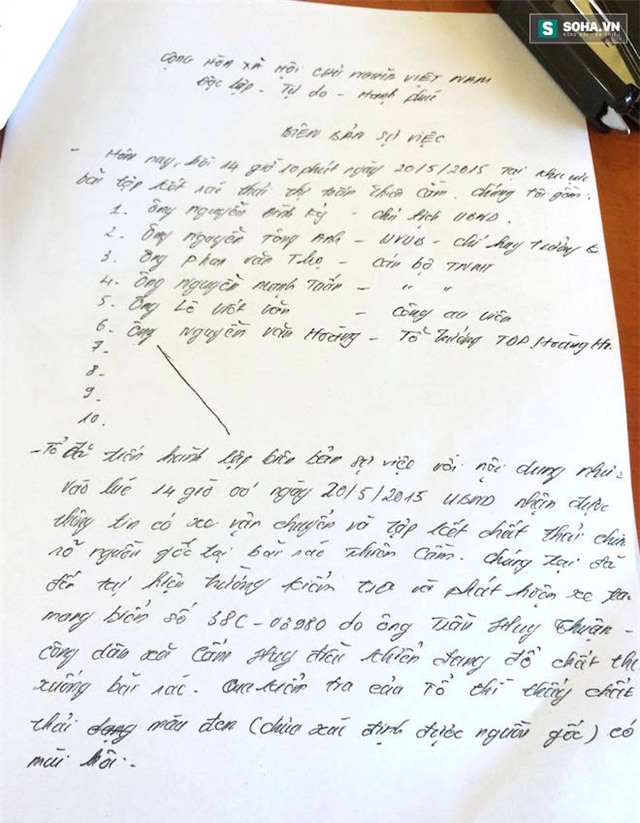 SOHA.VN
CỘNG HÒA XÃ HỘI CHỦ NGHĨA VIỆT NAM
Độc lập - Tự do - Hạnh phúc
BIÊN BẢN SỰ VIỆC
- Hôm nay, hồi 14 giờ 10 phút ngày 20/5/2015 tại khu vực
bãi tập kết rác thải thị trấn Thiên Cầm. Chúng tôi gồm:
1. Ông Nguyễn Đình Kỷ - Chủ tịch UBND.
2. Ông Nguyễn Tông Anh - UVUB - Chỉ huy trưởng
3. Ông Phan Văn Thọ - Cán bộ TNMT
4. Ông Nguyễn Mạnh Toản - " "
5. Ông Lê Viết Văn - Công an viên
6. Ông Nguyễn Văn Hoàng - Tổ trưởng TDP Hoàng
7.
8.
9.
10.
- Tổ đã tiến hành lập biên bản sự việc với nội dung như:
vào lúc 14 giờ 00 ngày 20/5/2015 UBND nhận được
thông tin có xe vận chuyển và tập kết chất thải chưa
rõ nguồn gốc tại bãi rác Thiên Cầm. Chúng tại đã
đến tại hiện trường kiểm tra và phát hiện xe
mang biển số 38C-03980 do ông Trần Huy Thuận -
công dân xã Cẩm Huy điều khiển đang đổ chất
xuống bãi rác. Qua kiểm tra của Tổ thì thấy chất
thải màu đen (chưa xác định được nguồn gốc) có
mùi hôi.